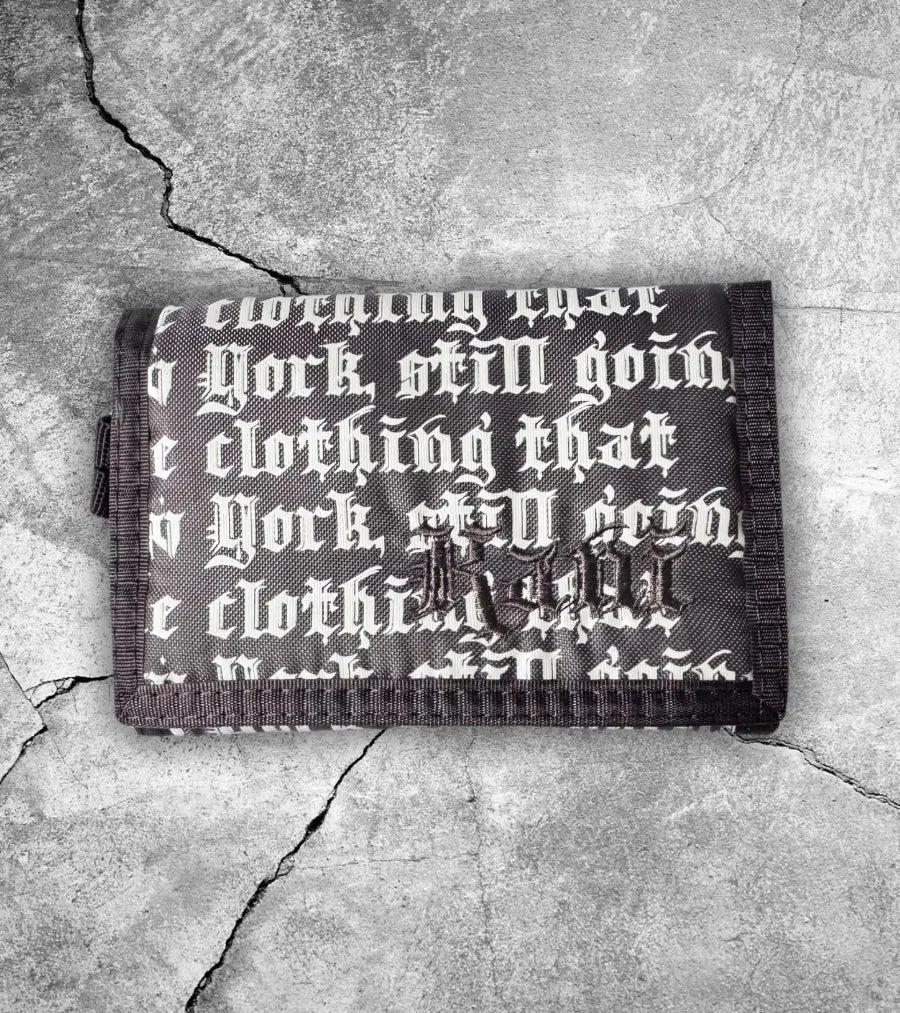 e clothing that
York, still going
e clothing that
York, still going
Kani
e clothing that
York, still going